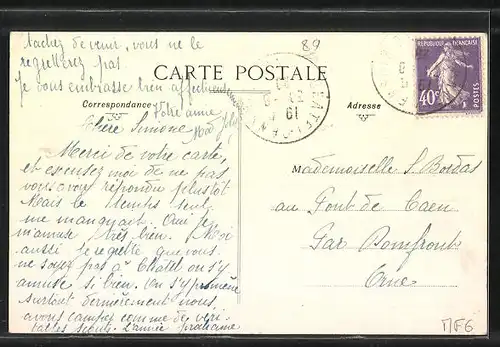 tachez de venir, vous ne le
regretterez pas
Je vous embrasse bien affectueusement
Votre amie
89
CARTE POSTALE
Correspondance
Adresse
REPUBLIQUE FRANÇAISE
40c
POSTES
Chère Simone
Merci de votre carte,
et excusez moi de ne pas
vous avoir répondu plus tôt
Mais le temps seul
me manquait. Oui je
m'amuse très bien. Moi
aussi je regrette que vous
ne soyez pas à Chatel on s'y
amuse si bien. On s'y promène
surtout dernièrement nous
avons campé comme de véri-
tables scouts. L'année prochaine
Mademoiselle S. Bordas
au Pont de Caen
Par Domfront
Orne